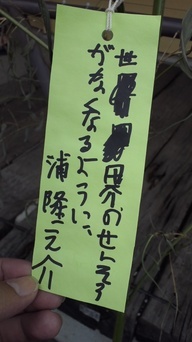 世界のせんそう
がなくなるように、
浦隆之介